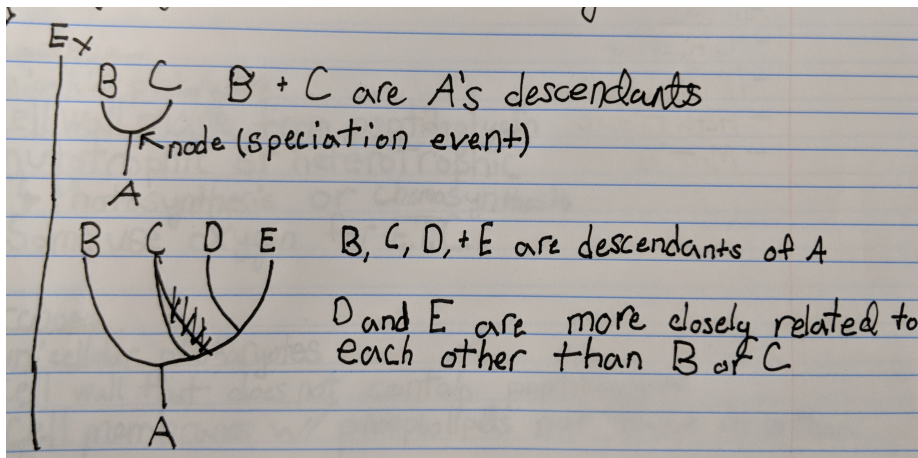 Ex
B C B + C are A's descendants
node (speciation event)
A
B C D E B, C, D, + E are descendants of A
D and E are more closely related to
each other than B or C
A